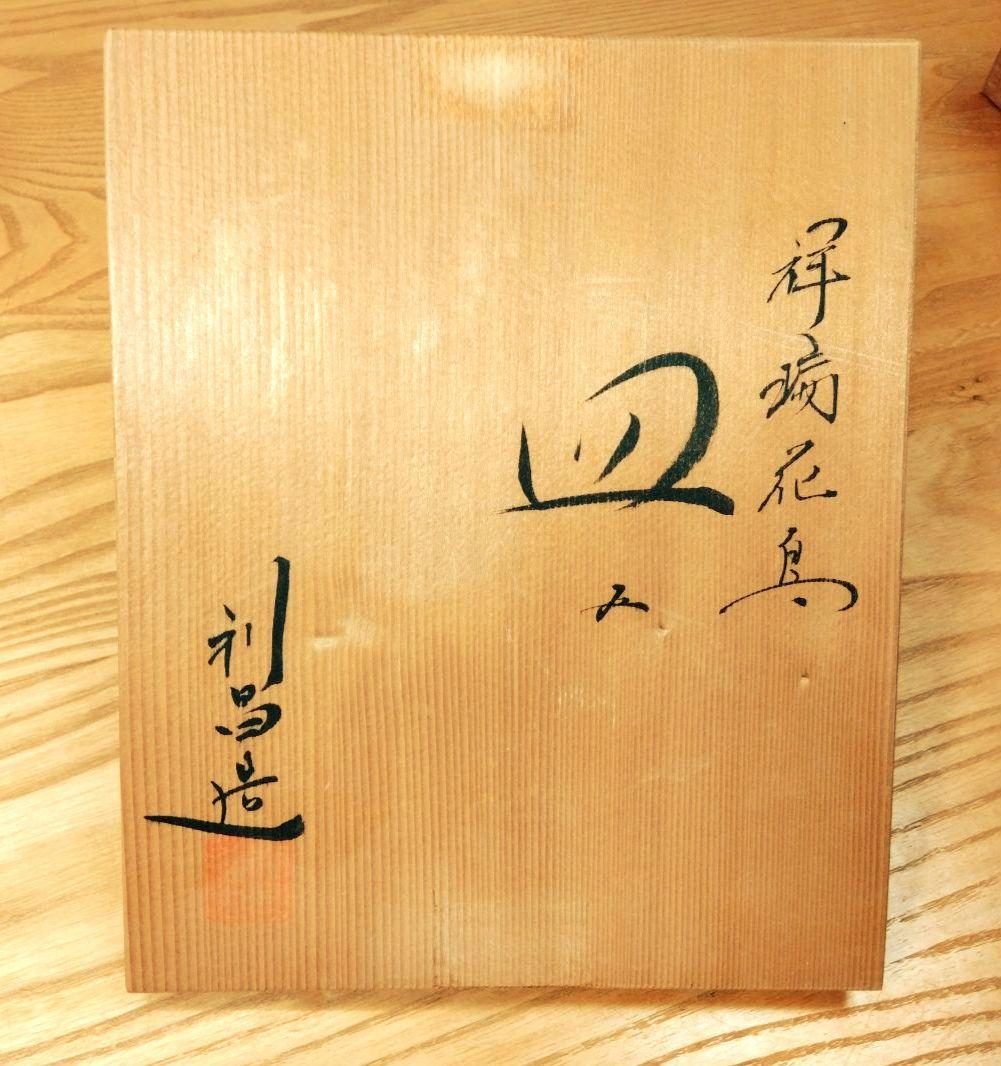 祥瑞花鳥
皿
五
利昌造